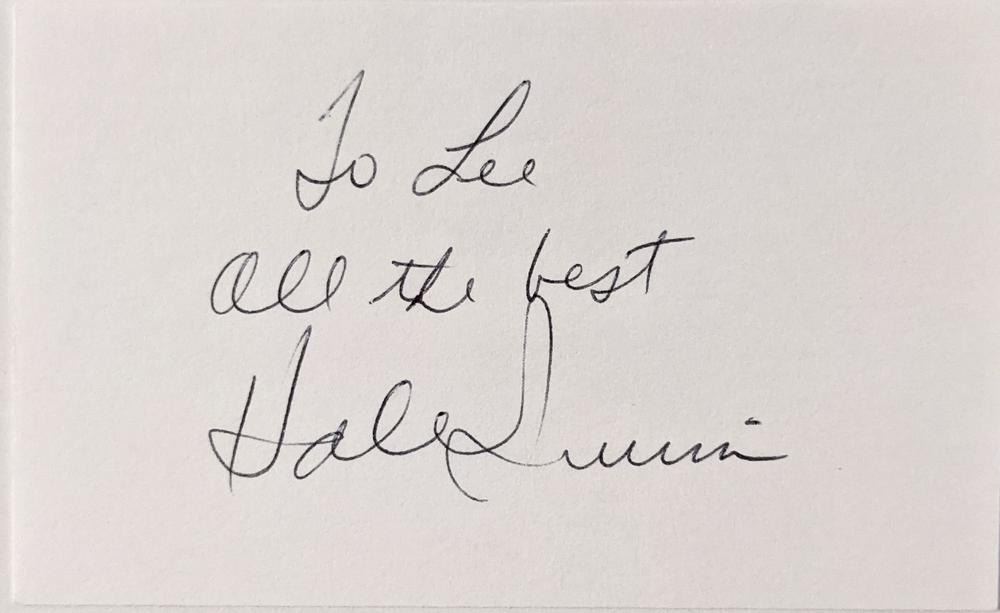 To Lee
all the best
Hale Irwin